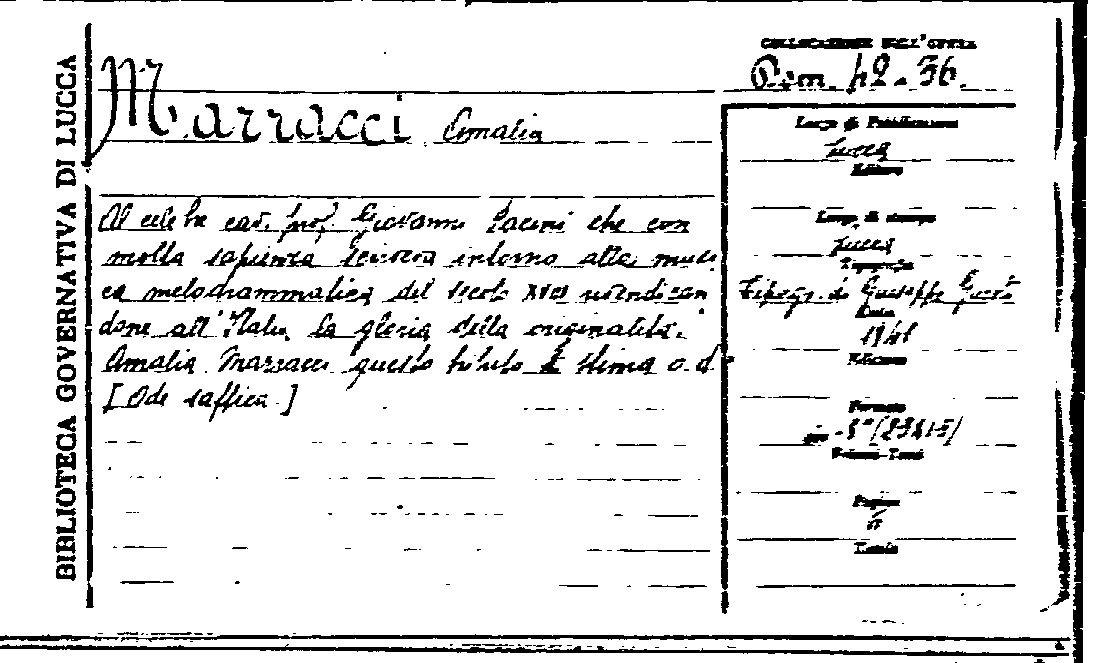 BIBLIOTECA GOVERNATIVA DI LUCCA
COLLOCAZIONE DELL'OPERA
42.36.
Marracci Amalia
Luogo di Pubblicazione
Lucca
Editore
Al celebre cav. prof. Giovanni Pacini che con
molta sapienza scriveva intorno alla musi
ca melodrammatica del secolo XVIII rivendican
done all'Italia la gloria della originalità.
Amalia Marracci questo tributo di stima o.d.
[Ode saffica]
Luogo di stampa
Lucca
Tipografia
Tipogr. di Giuseppe Giusti
Data
Edizione
Formato
in-8°
Volumi-Tomi
Pagine
Tavole